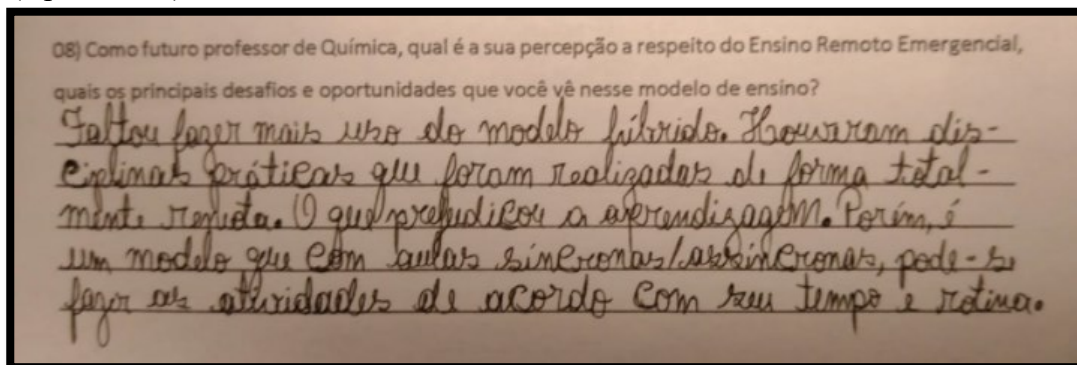 08) Como futuro professor de Química, qual é a sua percepção a respeito do Ensino Remoto Emergencial,
quais os principais desafios e oportunidades que você vê nesse modelo de ensino?
Faltou fazer mais uso do modelo híbrido. Houveram dis-
ciplinas práticas que foram realizadas de forma total-
mente remota. O que prejudicou a aprendizagem. Porém, é
um modelo que com aulas síncronas/assíncronas, pode-se
fazer as atividades de acordo com seu tempo e rotina.